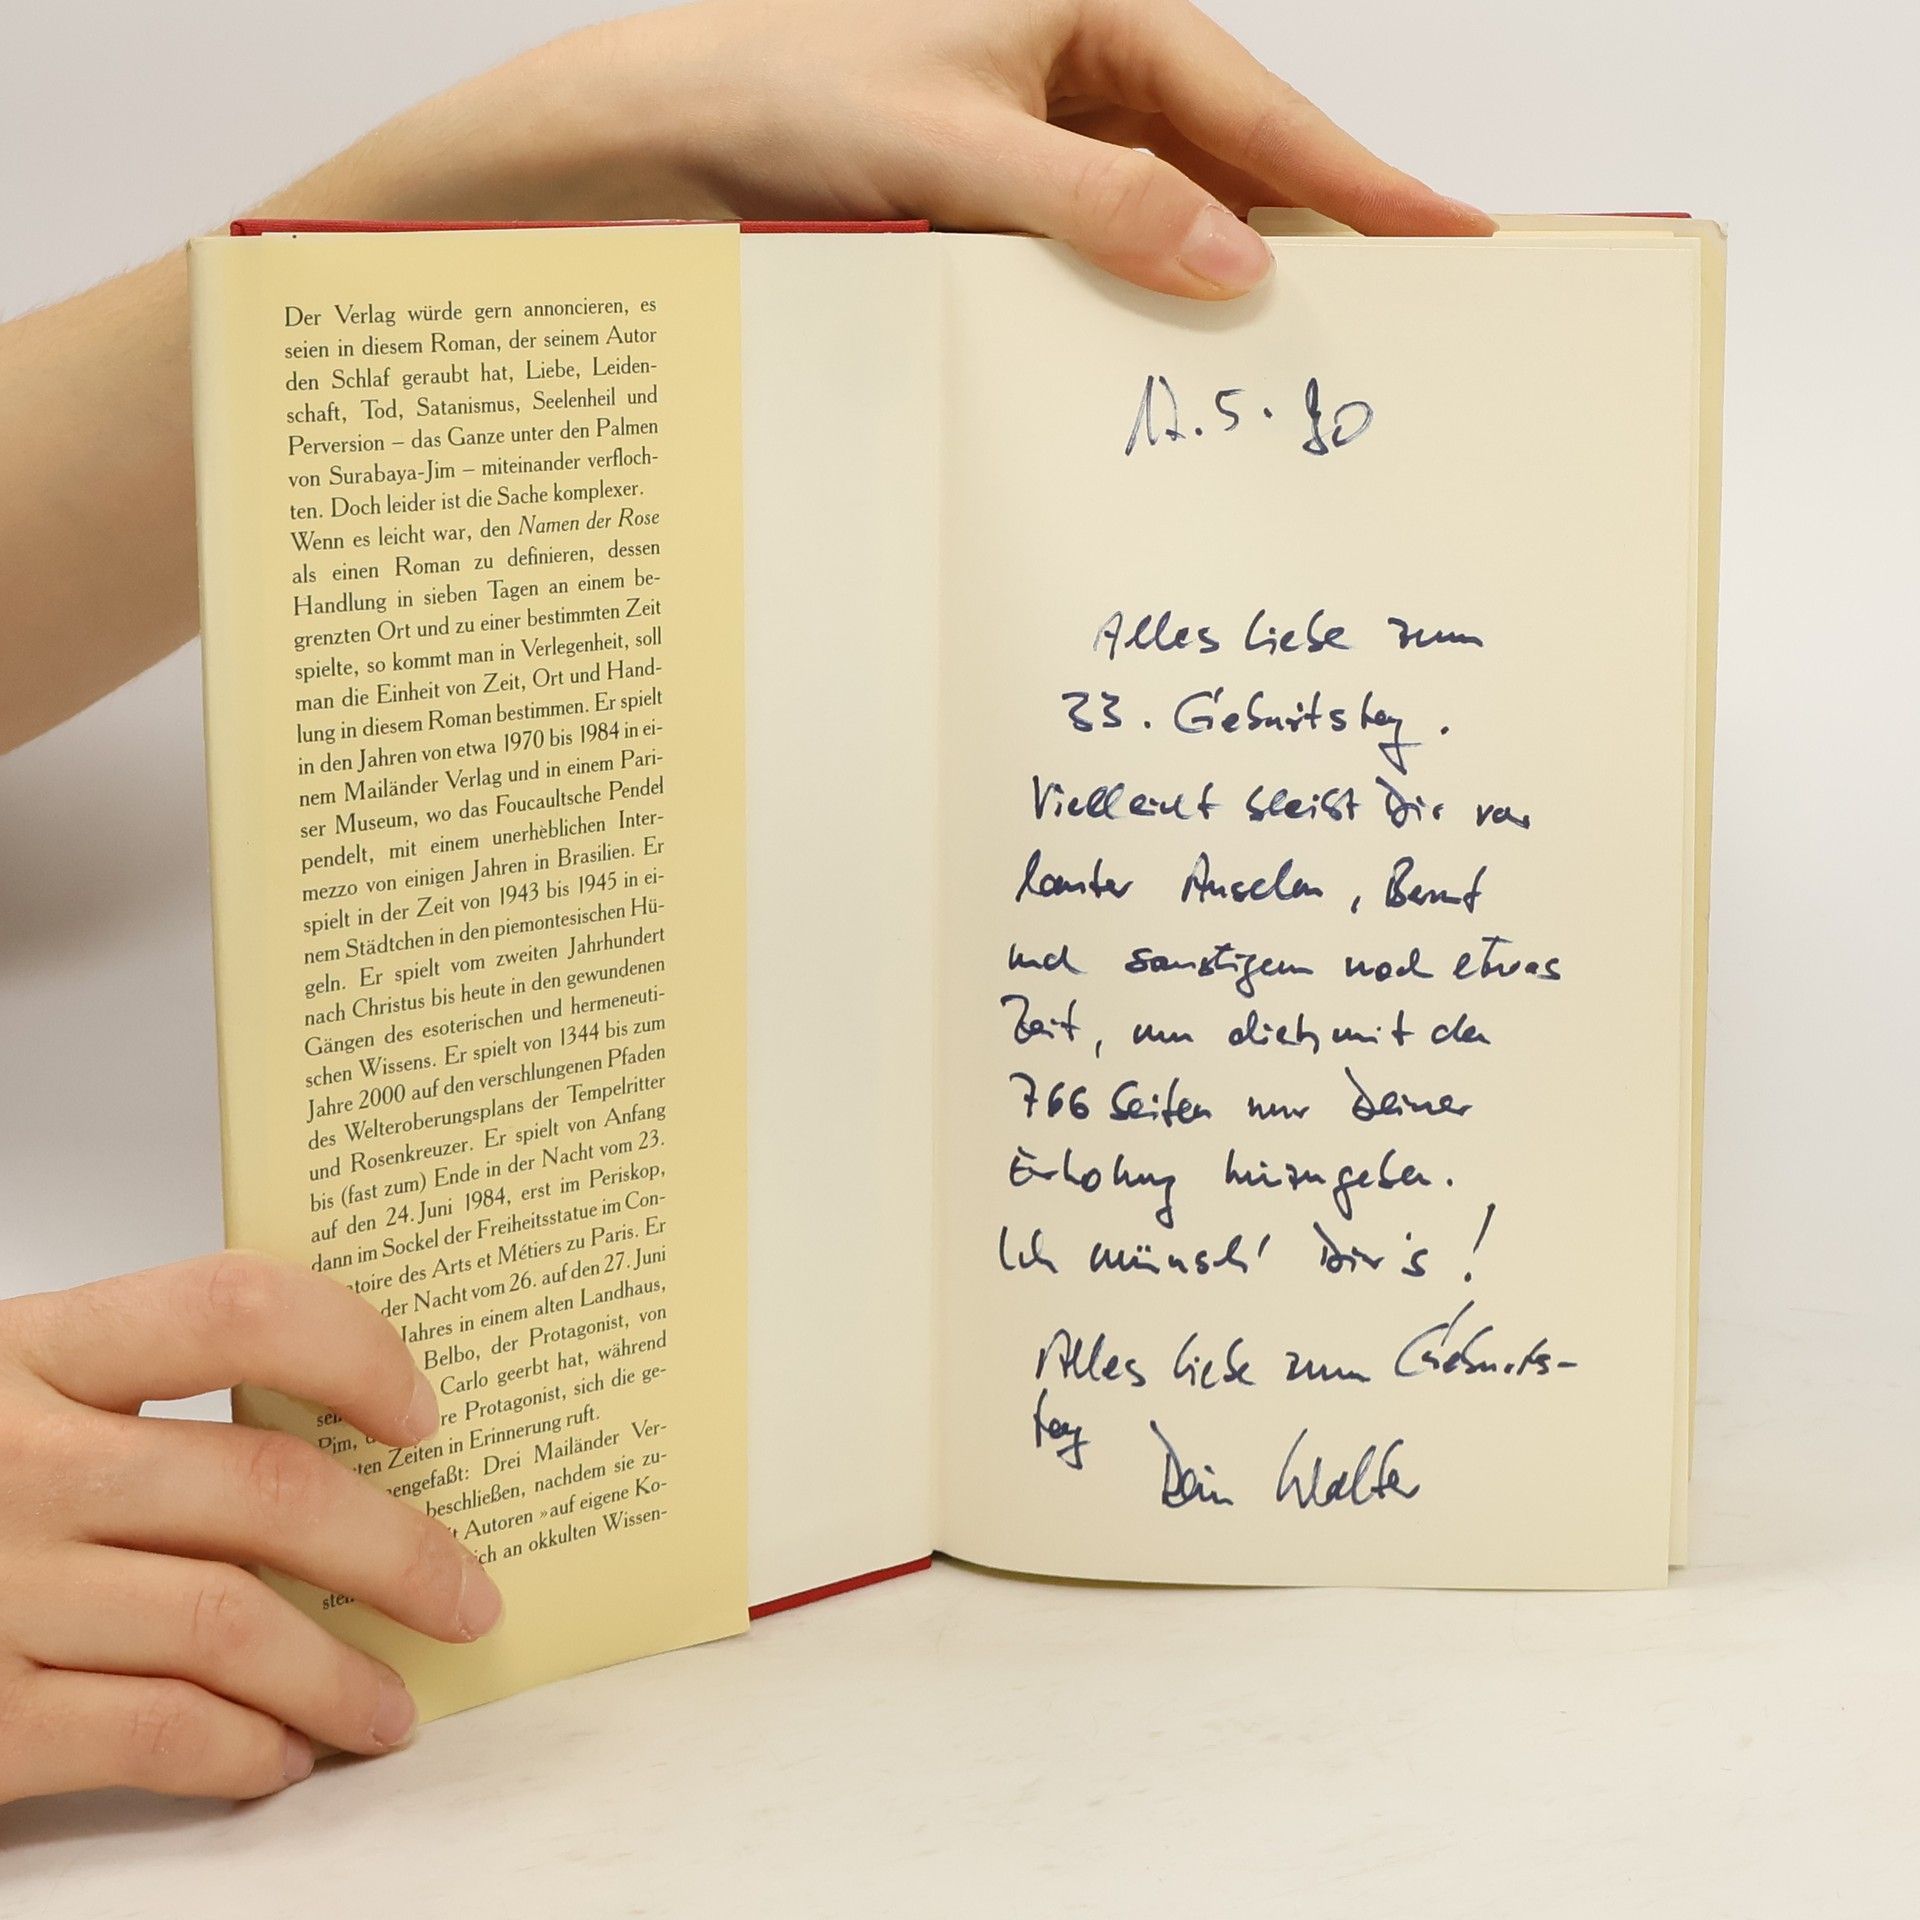 Der Verlag würde gern annoncieren, es
seien in diesem Roman, der seinem Autor
den Schlaf geraubt hat, Liebe, Leiden-
schaft, Tod, Satanismus, Seelenheil und
Perversion – das Ganze unter den Palmen
von Surabaya-Jim – miteinander verfloch-
ten. Doch leider ist die Sache komplexer.
Wenn es leicht war, den Namen der Rose
als einen Roman zu definieren, dessen
Handlung in sieben Tagen an einem be-
grenzten Ort und zu einer bestimmten Zeit
spielte, so kommt man in Verlegenheit, soll
man die Einheit von Zeit, Ort und Hand-
lung in diesem Roman bestimmen. Er spielt
in den Jahren von etwa 1970 bis 1984 in ei-
nem Mailänder Verlag und in einem Pari-
ser Museum, wo das Foucaultsche Pendel
pendelt, mit einem unerheblichen Inter-
mezzo von einigen Jahren in Brasilien. Er
spielt in der Zeit von 1943 bis 1945 in ei-
nem Städtchen in den piemontesischen Hü-
geln. Er spielt vom zweiten Jahrhundert
nach Christus bis heute in den gewundenen
Gängen des esoterischen und hermeneuti-
schen Wissens. Er spielt von 1344 bis zum
Jahre 2000 auf den verschlungenen Pfaden
des Welteroberungsplans der Tempelritter
und Rosenkreuzer. Er spielt von Anfang
bis (fast zum) Ende in der Nacht vom 23.
auf den 24. Juni 1984, erst im Periskop,
dann im Sockel der Freiheitsstatue im Con-
toire des Arts et Métiers zu Paris. Er
der Nacht vom 26. auf den 27. Juni
Jahres in einem alten Landhaus,
Belbo, der Protagonist, von
Carlo geerbt hat, während
re Protagonist, sich die ge-
Pim,
ten Zeiten in Erinnerung ruft.
engefaßt: Drei Mailänder Ver-
beschließen, nachdem sie zu-
t Autoren »auf eigene Ko-
ich an okkulten Wissen-
17.5.90
Alles Liebe zum
33. Geburtstag.
Vielleicht bleibt Dir vor
lauter Anselm, Bernt
und sonstigem noch etwas
Zeit, um dich mit den
766 Seiten nur Deiner
Erholung hinzugeben.
Ich wünsch' Dir's!
Alles Liebe zum Geburts-
tag
Dein Walter